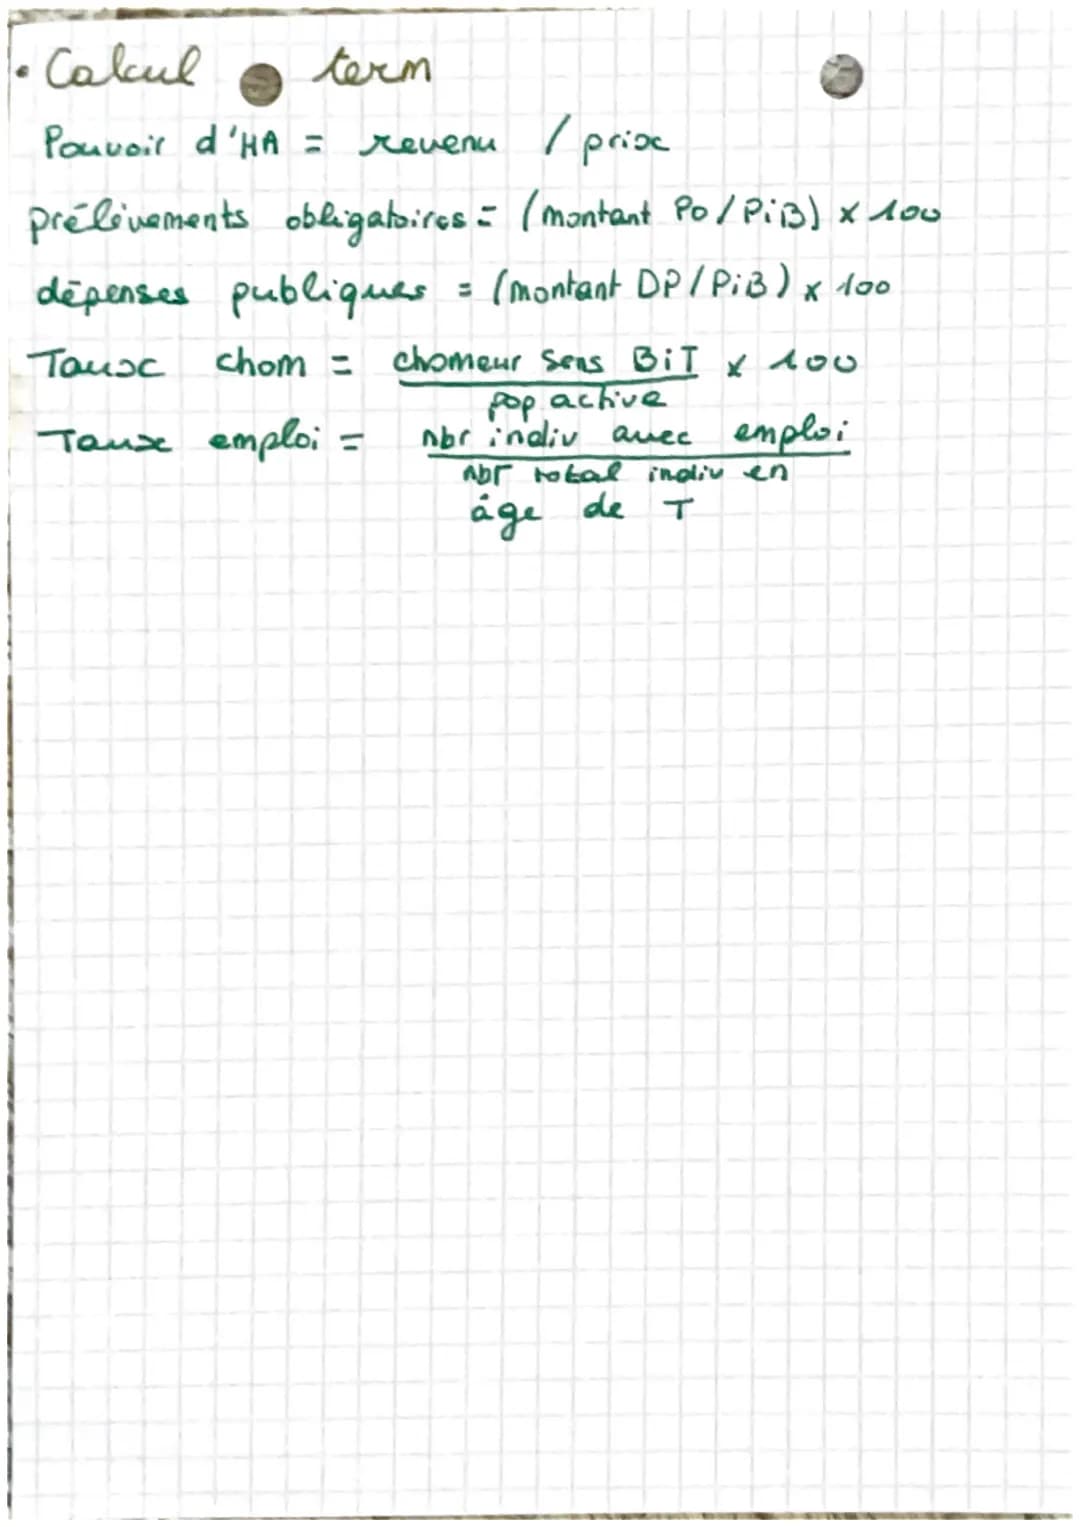 • Calcul term
Pouvoir d'HA = revenu / prix
prélèvements obligatoires = (montant PO/PiB) x 100
dépenses publiques = (montant DP/PiB) x 100
Taux chom = chomeur sens BiT x 100
pop active
Taux emploi = nbr indiv avec emploi
nbr total indiv en
âge de T